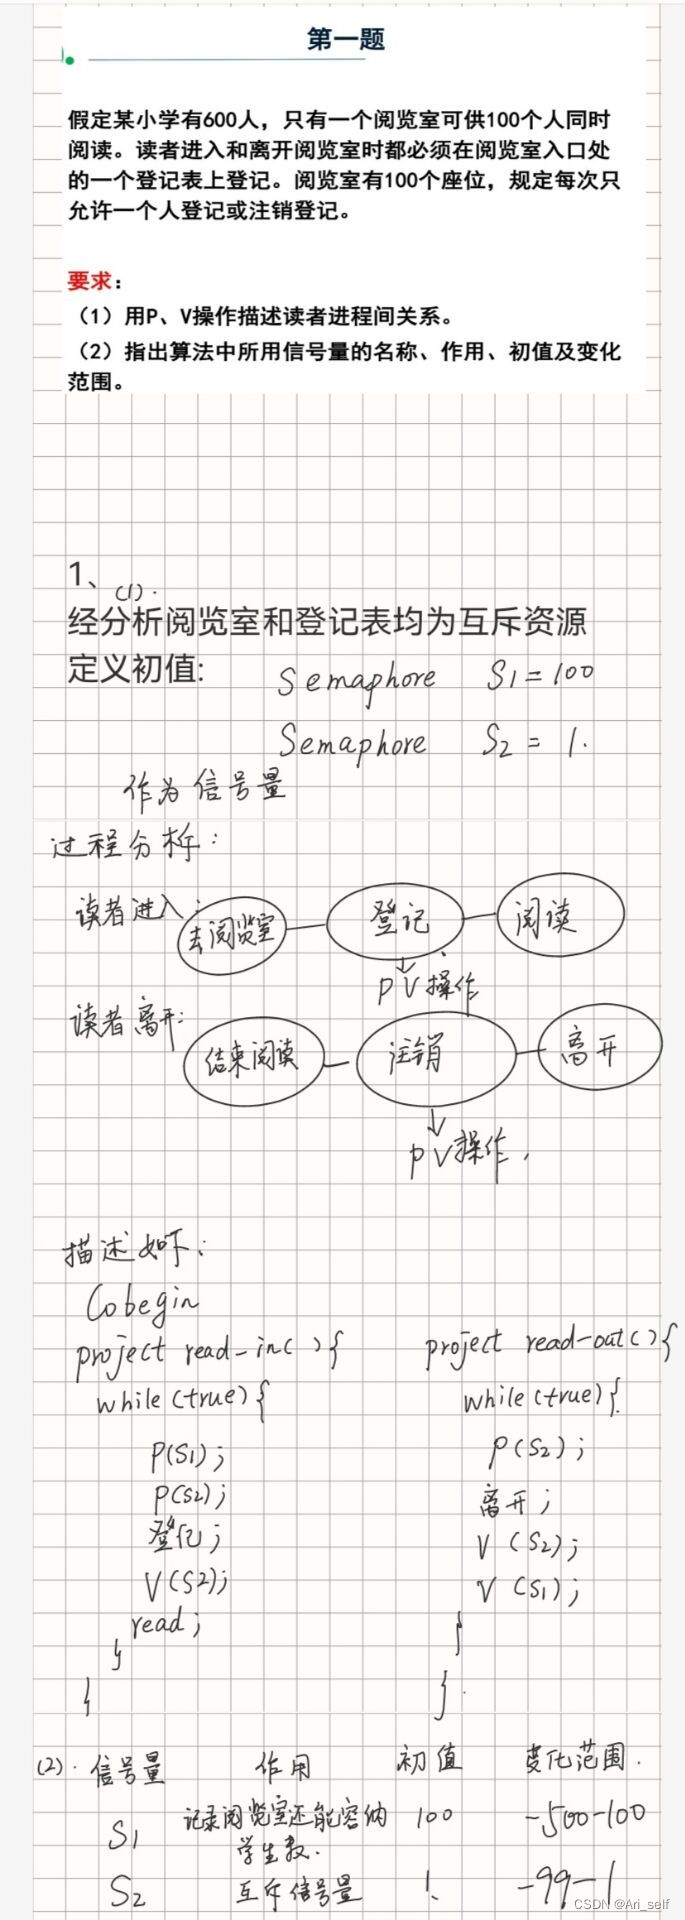 第一题
假定某小学有600人，只有一个阅览室可供100个人同时
阅读。读者进入和离开阅览室时都必须在阅览室入口处
的一个登记表上登记。阅览室有100个座位，规定每次只
允许一个人登记或注销登记。
要求：
（1）用P、V操作描述读者进程间关系。
（2）指出算法中所用信号量的名称、作用、初值及变化
范围。
1、
(1).
经分析阅览室和登记表均为互斥资源
定义初值: Semaphore S1=100
Semaphore S2 = 1.
作为信号量
过程分析:
读者进入: 去阅览室 登记 阅读
PV操作
读者离开: 结束阅读 注销 离开
PV操作,
描述如下:
Cobegin
project read-in( ){ project read-out(){
while(true){ while(true){
P(S1); P(S2);
P(S2); 离开;
登记; V(S2);
V(S2); V(S1);
read; }
}
} }.
(2). 信号量 作用 初值 变化范围.
S1 记录阅览室还能容纳 100 -500-100
学生数.
S2 互斥信号量 1. -99-1
CSDN @Ari_self